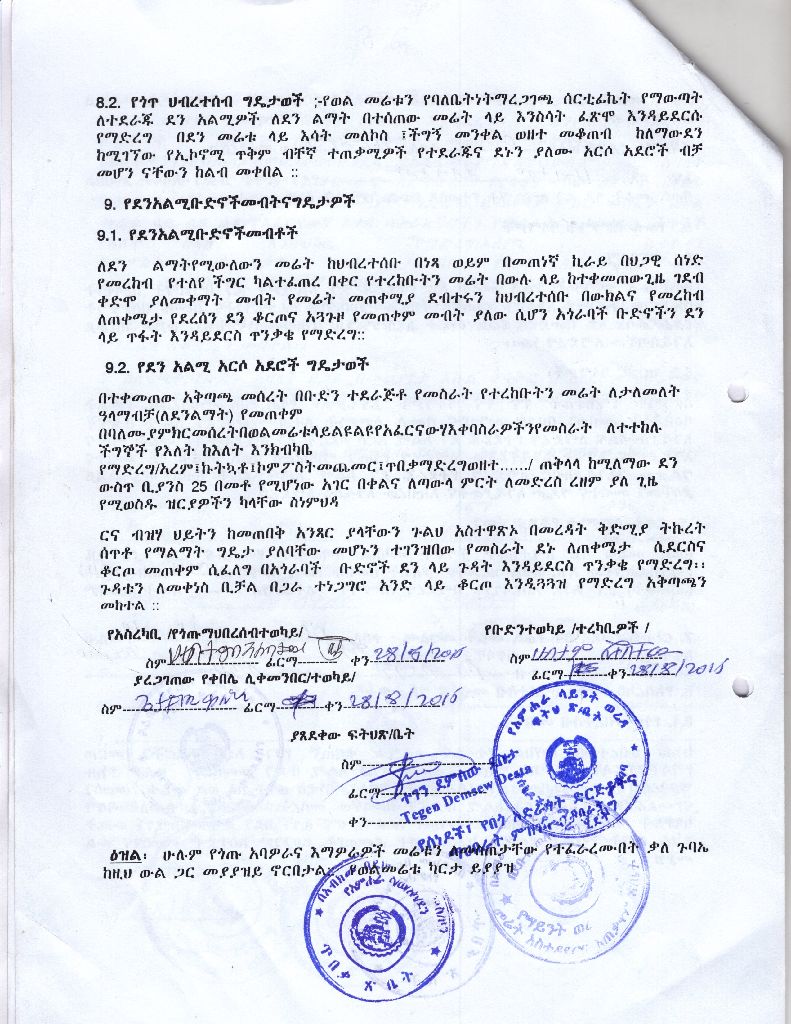 8.2. የጎጥ ህብረተሰብ ግዴታወች ;-የወል መሬቱን የባለቤትነትማረጋገጫ ሰርቲፊኬት የማውጣት
ለተደራጁ ደን አልሚዎች ለደን ልማት በተሰጠው መሬት ላይ እንስሳት ፈጽሞ እንዳይደርሱ
የማድረግ በደን መሬቱ ላይ እሳት መለኮስ ፤ችግኝ መንቀል ወዘተ መቆጠብ ከለማውደን
ከሚገኘው የኢኮኖሚ ጥቅም ብቸኛ ተጠቃሚዎች የተደራጁና ደኑን ያለሙ አርሶ አደሮች ብቻ
መሆን ናቸውን ከልብ መቀበል ::
9. የደንአልሚቡድኖችመብትናግዴታዎች
9.1. የደንአልሚቡድኖችመብቶች
ለደን ልማትየሚውለውን መሬት ከህብረተሰቡ በነጻ ወይም በመጠነኛ ኪራይ በህጋዊ ሰነድ
የመረከብ የተለየ ችግር ካልተፈጠረ በቀር የተረከቡትን መሬት በውሉ ላይ ከተቀመጠውጊዜ ገደብ
ቀድሞ ያለመቀማት መብት የመሬት መጠቀሚያ ደብተሩን ከህብረተሰቡ በውክልና የመረከብ
ለጠቀሜታ የደረሰን ደን ቆርጦና አጓጉዞ የመጠቀም መብት ያለው ሲሆን አጎራባች ቡድኖችን ደን
ላይ ጥፋት እንዳይደርስ ጥንቃቄ የማድረግ::
9.2. የደን አልሚ አርሶ አደሮች ግዴታወች
በተቀመጠው አቅጣጫ መሰረት በቡድን ተደራጅቶ የመስራት የተረከቡትን መሬት ለታለመለት
ዓላማብቻ(ለደንልማት) የመጠቀም
በባለሙያምክርመሰረትበወልመሬቱላይልዩልዩየአፈርናውሃእቀባስራዎችንየመስራት ለተተከሉ
ችግኞች የእለት ከእለት እንክብካቤ
የማድረግ/አረም፤ኩትኳቶ፤ኮምፖስትመጨመር፤ጥበቃማድረግወዘተ....../ ጠቅላላ ከሚለማው ደን
ውስጥ ቢያንስ 25 በመቶ የሚሆነው አገር በቀልና ለጣውላ ምርት ለመድረስ ረዘም ያለ ጊዜ
የሚወስዱ ዝርያዎችን ካላቸው ስነምህዳ
ርና ብዝሃ ህይትን ከመጠበቅ አንጻር ያላቸውን ጉልህ አስተዋጽኦ በመረዳት ቅድሚያ ትኩረት
ሰጥቶ የማልማት ግዴታ ያለባቸው መሆኑን ተገንዝበው የመስራት ደኑ ለጠቀሜታ ሲደርስና
ቆርጦ መጠቀም ሲፈለግ በአጎራባች ቡድኖች ደን ላይ ጉዳት እንዳይደርስ ጥንቃቄ የማድረግ፡፡
ጉዳቱን ለመቀነስ ቢቻል በጋራ ተነጋግሮ አንድ ላይ ቆርጦ እንዲጓጓዝ የማድረግ አቅጣጫን
መከተል ::
የአስረካቢ /የጎጡማህበረሰብተወካይ/
የቡድንተወካይ /ተረካቢዎች /
ስም ፊርማ ቀን 28/8/2015
ስም
ፊርማ ቀን 28/8/2015
ያረጋገጠው የቀበሌ ሊቀመንበር/ተወካይ/
ስም ፊርማ ቀን 28/8/2015
ያጸደቀው ፍትህጽ/ቤት
ስም
ፊርማ
ተገን ደምሰው ደስታ
Tegen Demsew Desta
ቀን
ዕዝል፡ ሁሉም የጎጡ አባዎራና እማዎራዎች መሬቱን ለመስጠታቸው የተፈራረሙበት ቃለ ጉባኤ
ከዚህ ውል ጋር መያያዝይ ኖርበታል፤ የወልመሬቱ ካርታ ይያያዝ